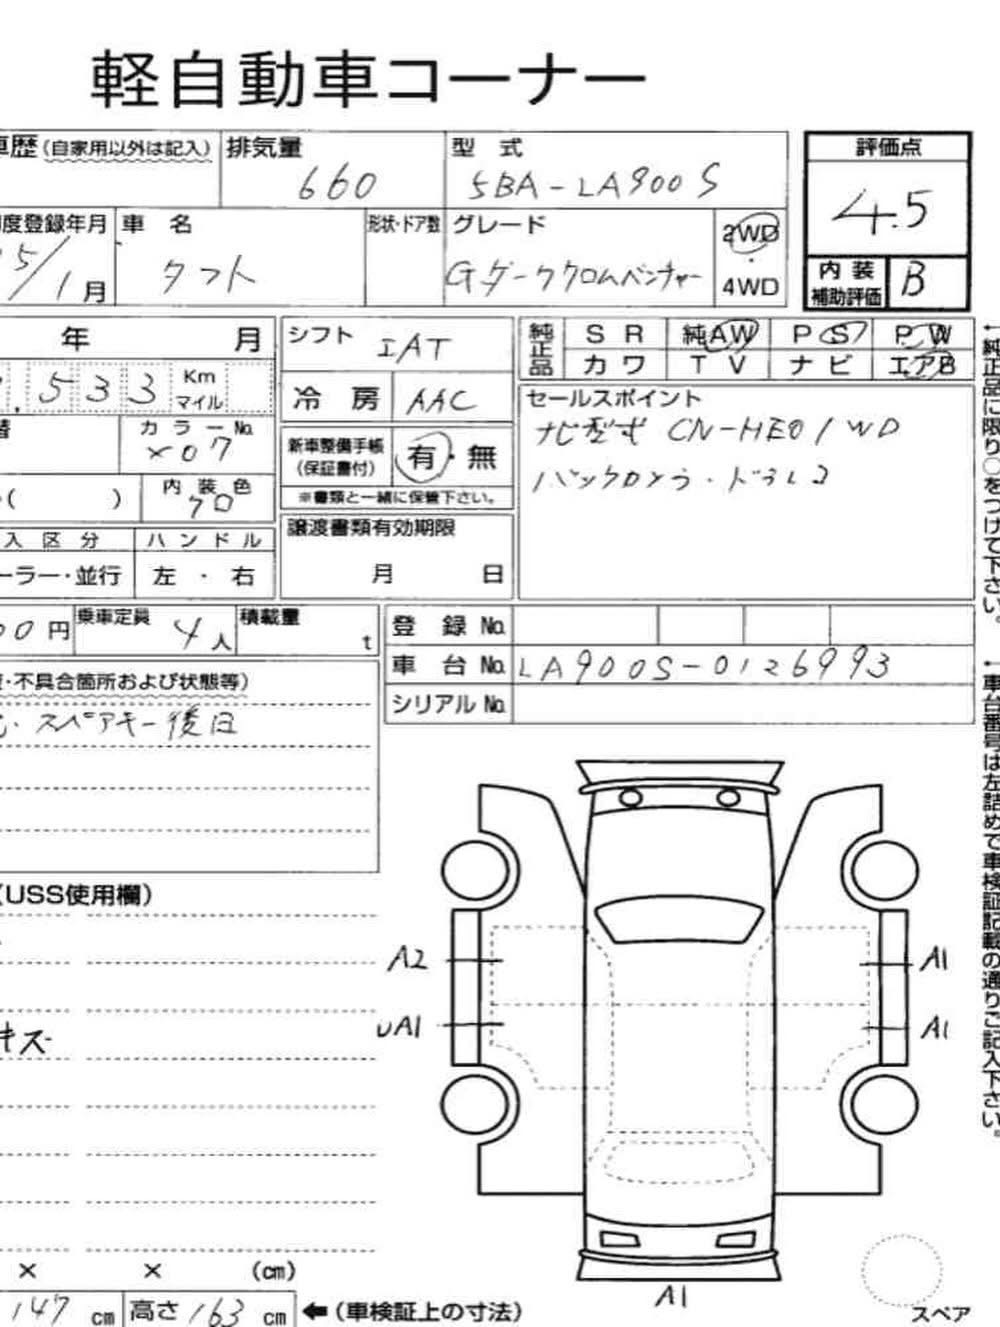 軽自動車コーナー
車歴(自家用以外は記入) 排気量 型式 評価点
660 5BA-LA900S 4.5
初度登録年月 車名 形状・ドア数 グレード 2WD
5/1月 タフト Gダーククロムベンチャー 4WD
内装補助評価 B
年 月 シフト IAT 純正品 SR 純AW PS PW
カワ TV ナビ エアB
533 Km マイル 冷房 AAC
セールスポイント
ナビ型式 CN-HE01WD
バックカメラ・ドラレコ
替 カラーNo. X07
新車整備手帳(保証書付) 有・無
※書類と一緒に保管下さい。
( ) 内装色 クロ
譲渡書類有効期限
月 日
入区分 ハンドル
ーラー・並行 左・右
00円 乗車定員 4人 積載量 t
登録No.
車台No. LA900S-0126993
シリアルNo.
・不具合箇所および状態等)
・スペアキー後日
(USS使用欄)
キズ
A2 A1
UA1 A1
A1
× × (cm)
147cm 高さ163cm ←(車検証上の寸法)
スペア
←純正品に限り○をつけて下さい。
←車台番号は左詰めで車検証記載の通りご記入下さい。